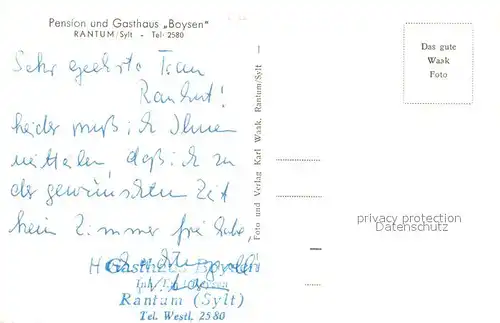 Pension und Gasthaus „Boysen"
RANTUM/Sylt - Tel. 2580
Sehr geehrte Frau
Ranhut!
leider muß ich Ihnen
mitteilen, daß ich zu
der gewünschten Zeit
kein Zimmer frei habe,
Gasthaus Boysen
Inh.
Rantum (Sylt)
Tel. Westl. 2580
Foto und Verlag Karl Waak, Rantum/Sylt –
Das gute
Waak
Foto
privacy protection
Datenschutz